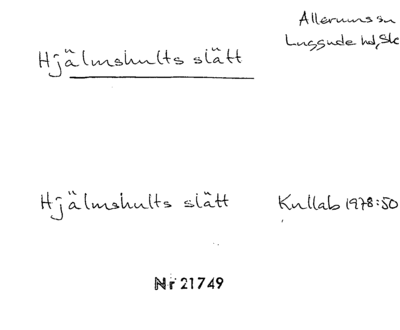 Allerums sn
Luggude hd, Sk
Hjälmshults slätt
Hjälmshults slätt Kullab 1978:50
Nr 21749